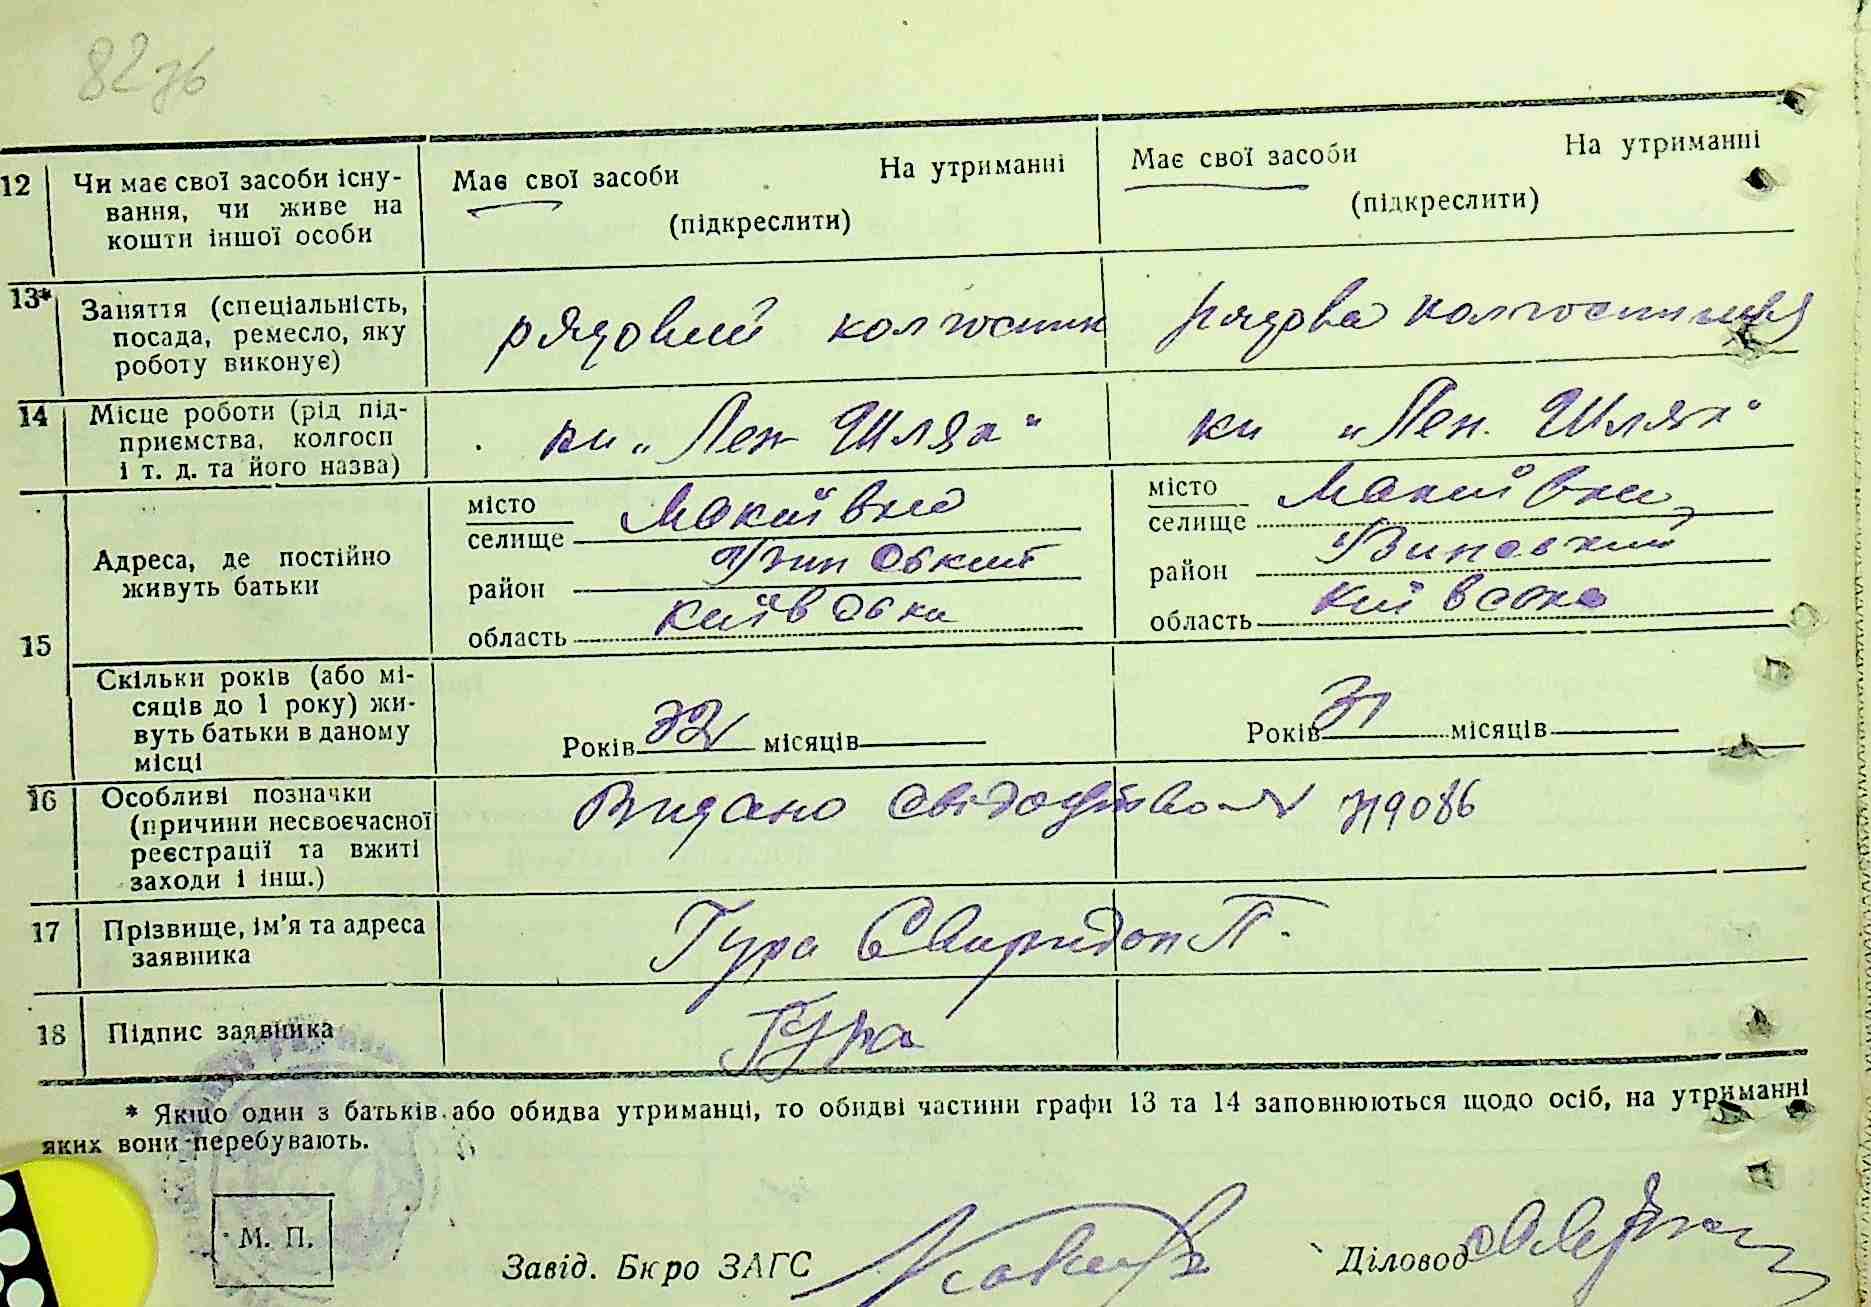 82зв
12 Чи має свої засоби існу-
вання, чи живе на
кошти іншої особи
Має свої засоби На утриманні
(підкреслити)
Має свої засоби На утриманні
(підкреслити)
13* Заняття (спеціальність,
посада, ремесло, яку
роботу виконує)
рядовий колгоспник
рядова колгоспниця
14 Місце роботи (рід під-
приємства, колгосп
і т. д. та його назва)
"Лен Шлях"
"Лен. Шлях"
15 Адреса, де постійно
живуть батьки
місто
селище Макиївка
район
область Київська
місто
селище Макиївка
район
область Київська
Скільки років (або мі-
сяців до 1 року) жи-
вуть батьки в даному
місці
Років 32 місяців
Років 31 місяців
16 Особливі позначки
(причини несвоєчасної
реєстрації та вжиті
заходи і інш.)
Видано свідоцтво N 719086
17 Прізвище, ім'я та адреса
заявника
Гура Свиридон П.
18 Підпис заявника
Гура
* Якщо один з батьків або обидва утриманці, то обидві частини графи 13 та 14 заповнюються щодо осіб, на утриманні
яких вони перебувають.
М. П.
Завід. Бюро ЗАГС
Діловод